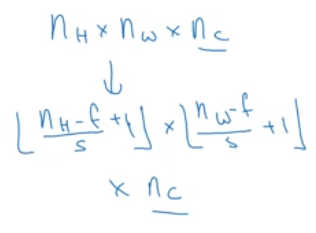 n_H × n_W × n_C
↓
⌊(n_H - f)/s + 1⌋ × ⌊(n_W - f)/s + 1⌋
× n_C